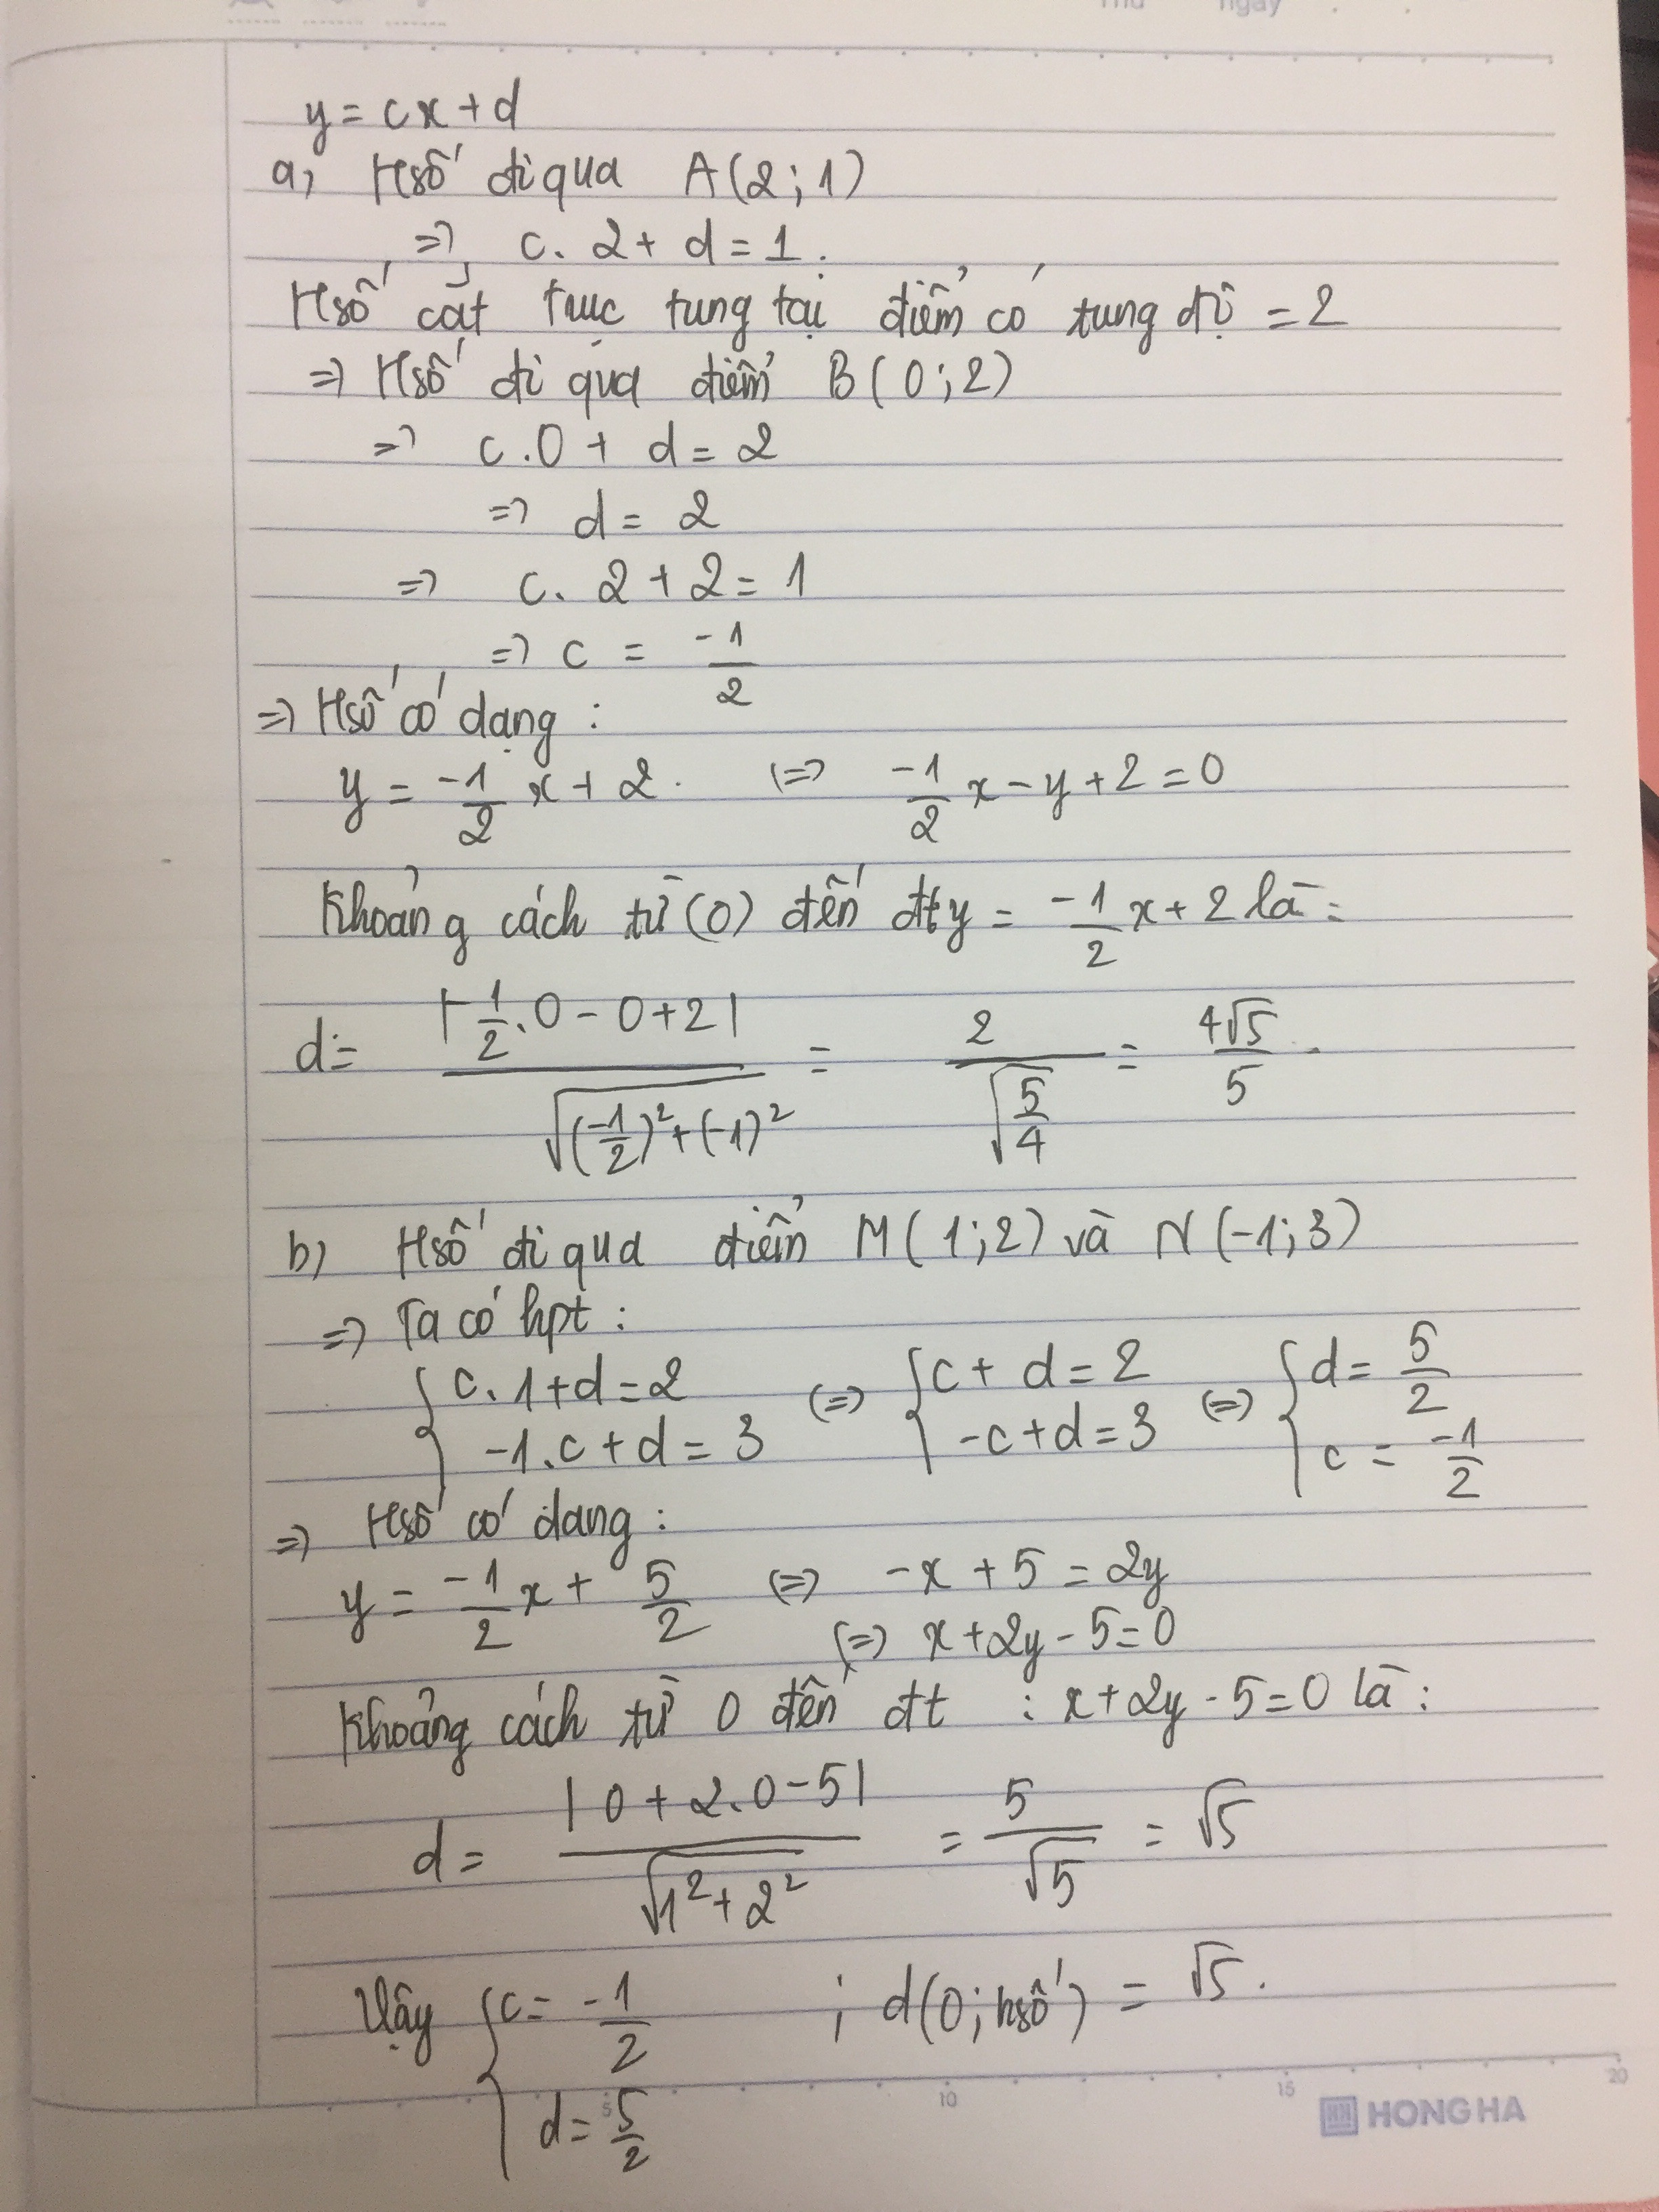 Thứ ngày
y = cx + d
a, Hsố đi qua A(2;1)
=> c. 2 + d = 1.
Hsố cắt trục tung tại điểm có tung độ = 2
=> Hsố đi qua điểm B(0;2)
=> c.0 + d = 2
=> d = 2
=> c. 2 + 2 = 1
=> c = -1/2
=> Hsố có dạng:
y = -1/2 x + 2. (=> -1/2 x - y + 2 = 0
Khoảng cách từ (0) đến đt y = -1/2 x + 2 là:
d = |-1/2.0 - 0 + 2| / √((-1/2)² + (-1)²) = 2/√(5/4) = 4√5/5.
b) Hsố đi qua điểm M(1;2) và N(-1;3)
=> Ta có hpt:
{ c.1 + d = 2 (=> { c + d = 2 (=> { d = 5/2
-1.c + d = 3 -c + d = 3 c = -1/2
=> Hsố có dạng:
y = -1/2 x + 5/2 (=> -x + 5 = 2y
(=> x + 2y - 5 = 0
Khoảng cách từ 0 đến đt : x + 2y - 5 = 0 là:
d = |0 + 2.0 - 5| / √(1² + 2²) = 5/√5 = √5
Vậy { c = -1/2 ; d(0; hsố) = √5.
d = 5/2
5 10 15 20
HH HONG HA